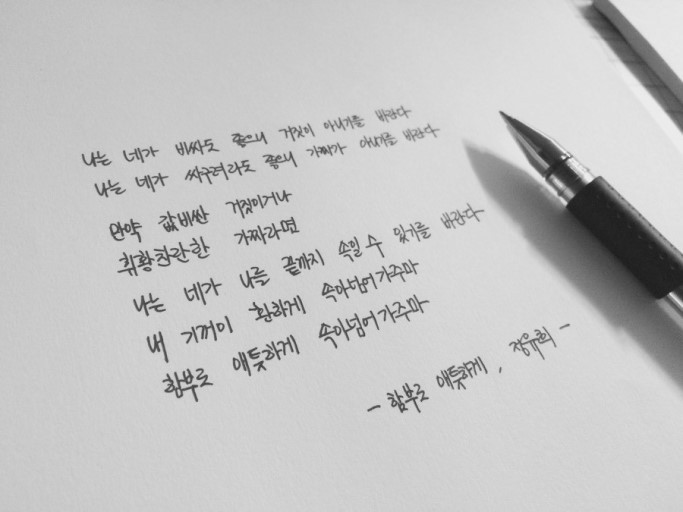 나는 네가 비싸도 좋으니 거짓이 아니기를 바란다
나는 네가 싸구려라도 좋으니 가짜가 아니기를 바란다
만약 값비싼 거짓이거나
휘황찬란한 가짜라면
나는 네가 나를 끝까지 속일 수 있기를 바란다
내 기꺼이 환하게 속아넘어가주마
함부로 애틋하게 속아넘어가주마
- 함부로 애틋하게, 정유희 -